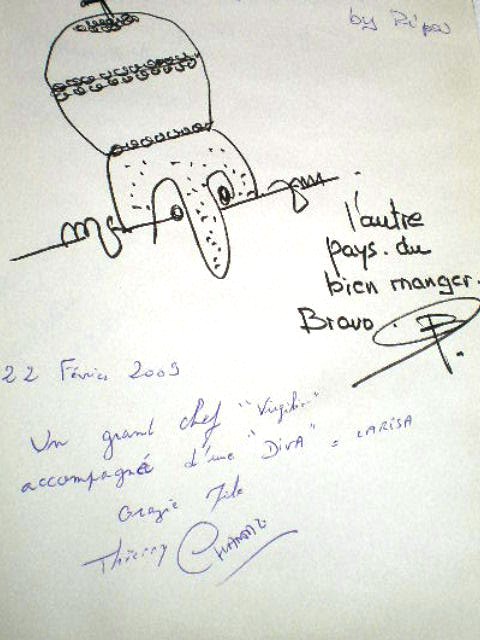 by
l'autre
pays. du
bien manger.
Bravo.
22 Février 2009
Un grand chef "Virgilio"
accompagné d'une "DIVA" = LARISA
Grazie Mile
Thierry